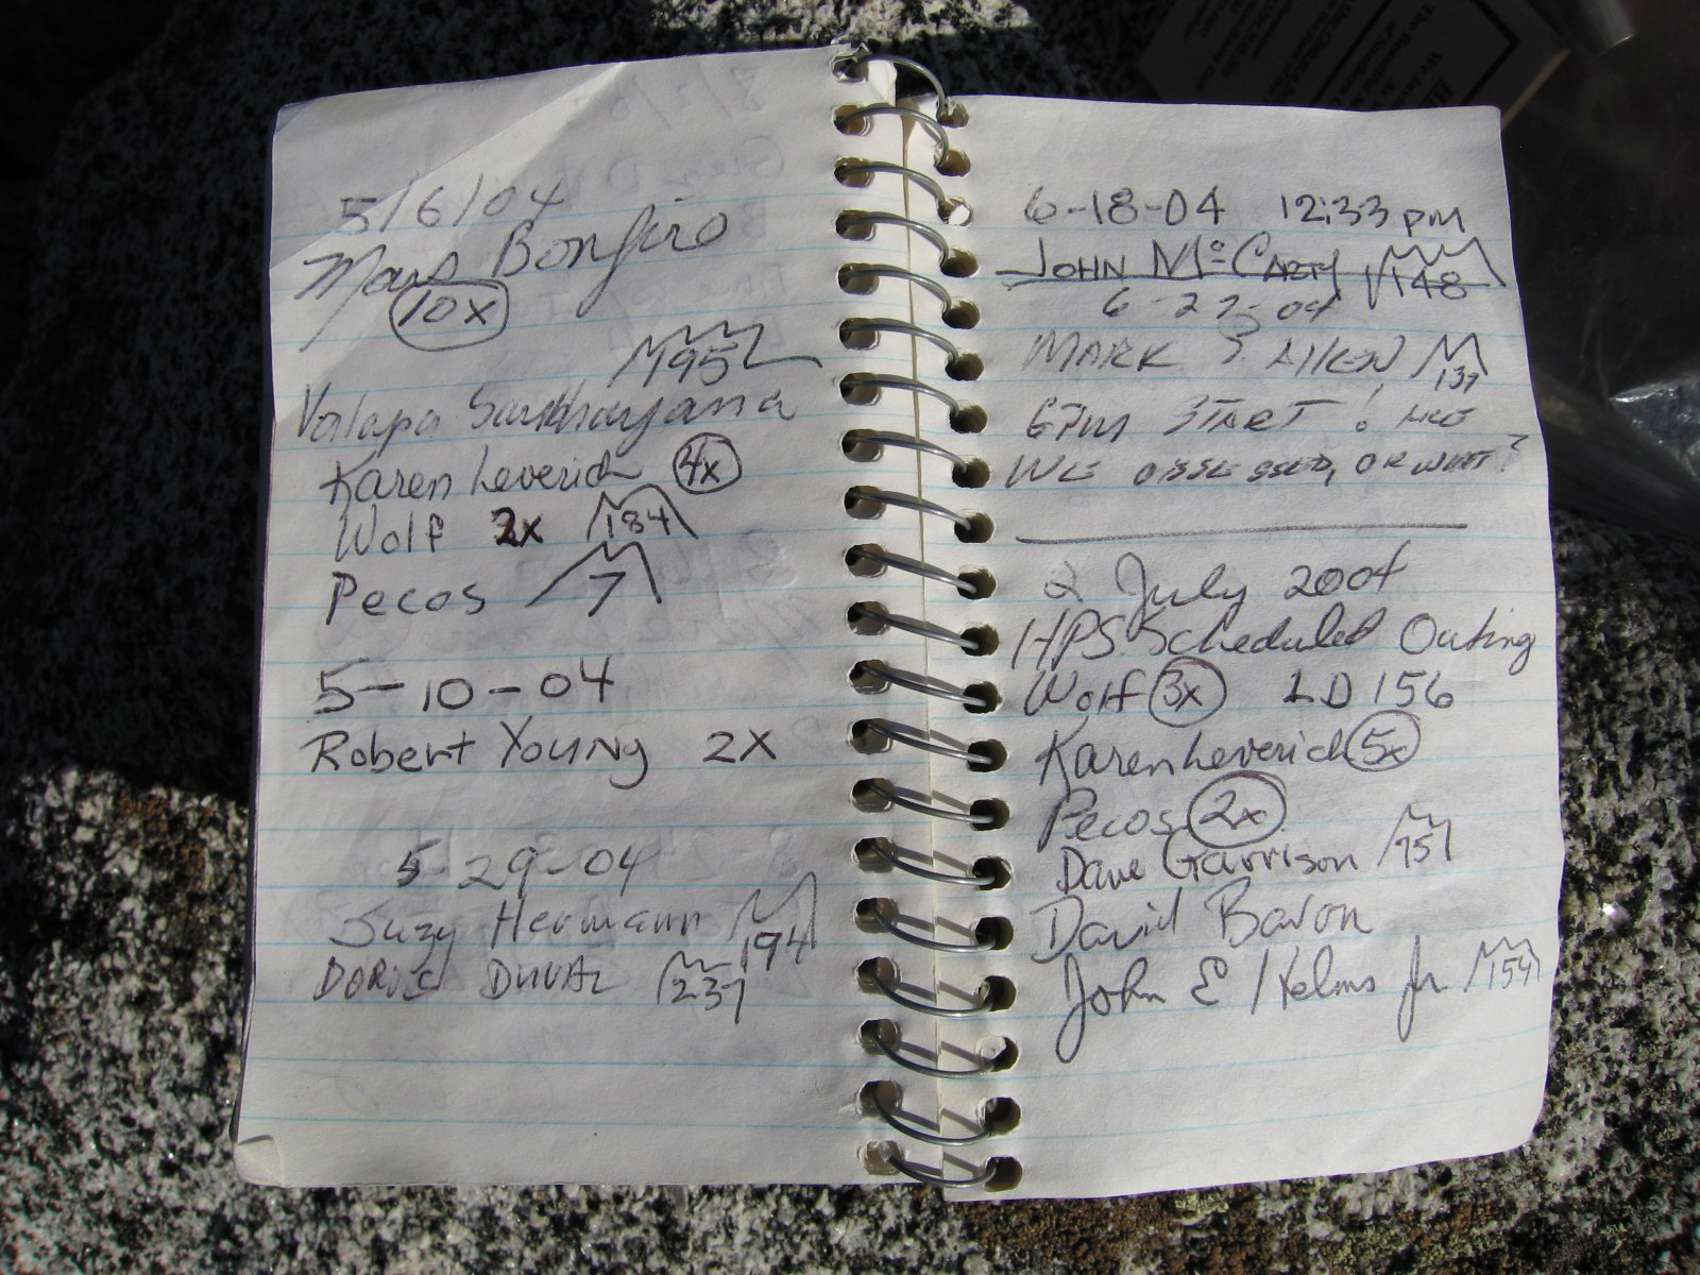 5/6/04
Mars Bonfire
10x
195
Valapa Sankhayana
Karen Leverich 4x
Wolf 2x 184
Pecos 7
5-10-04
Robert Young 2X
5-29-04
Suzy Hermann 194
Doris Duval 237
6-18-04 12:33 PM
John McCarty 148
6-27-04
Mark S. Allen 139
6PM START! ARE
WE OBSESSED, OR WHAT?
2 July 2004
HPS Scheduled Outing
Wolf 3x LD 156
Karen Leverich 5x
Pecos 2x
Dave Garrison 151
David Baron
John E Helms Jr 154